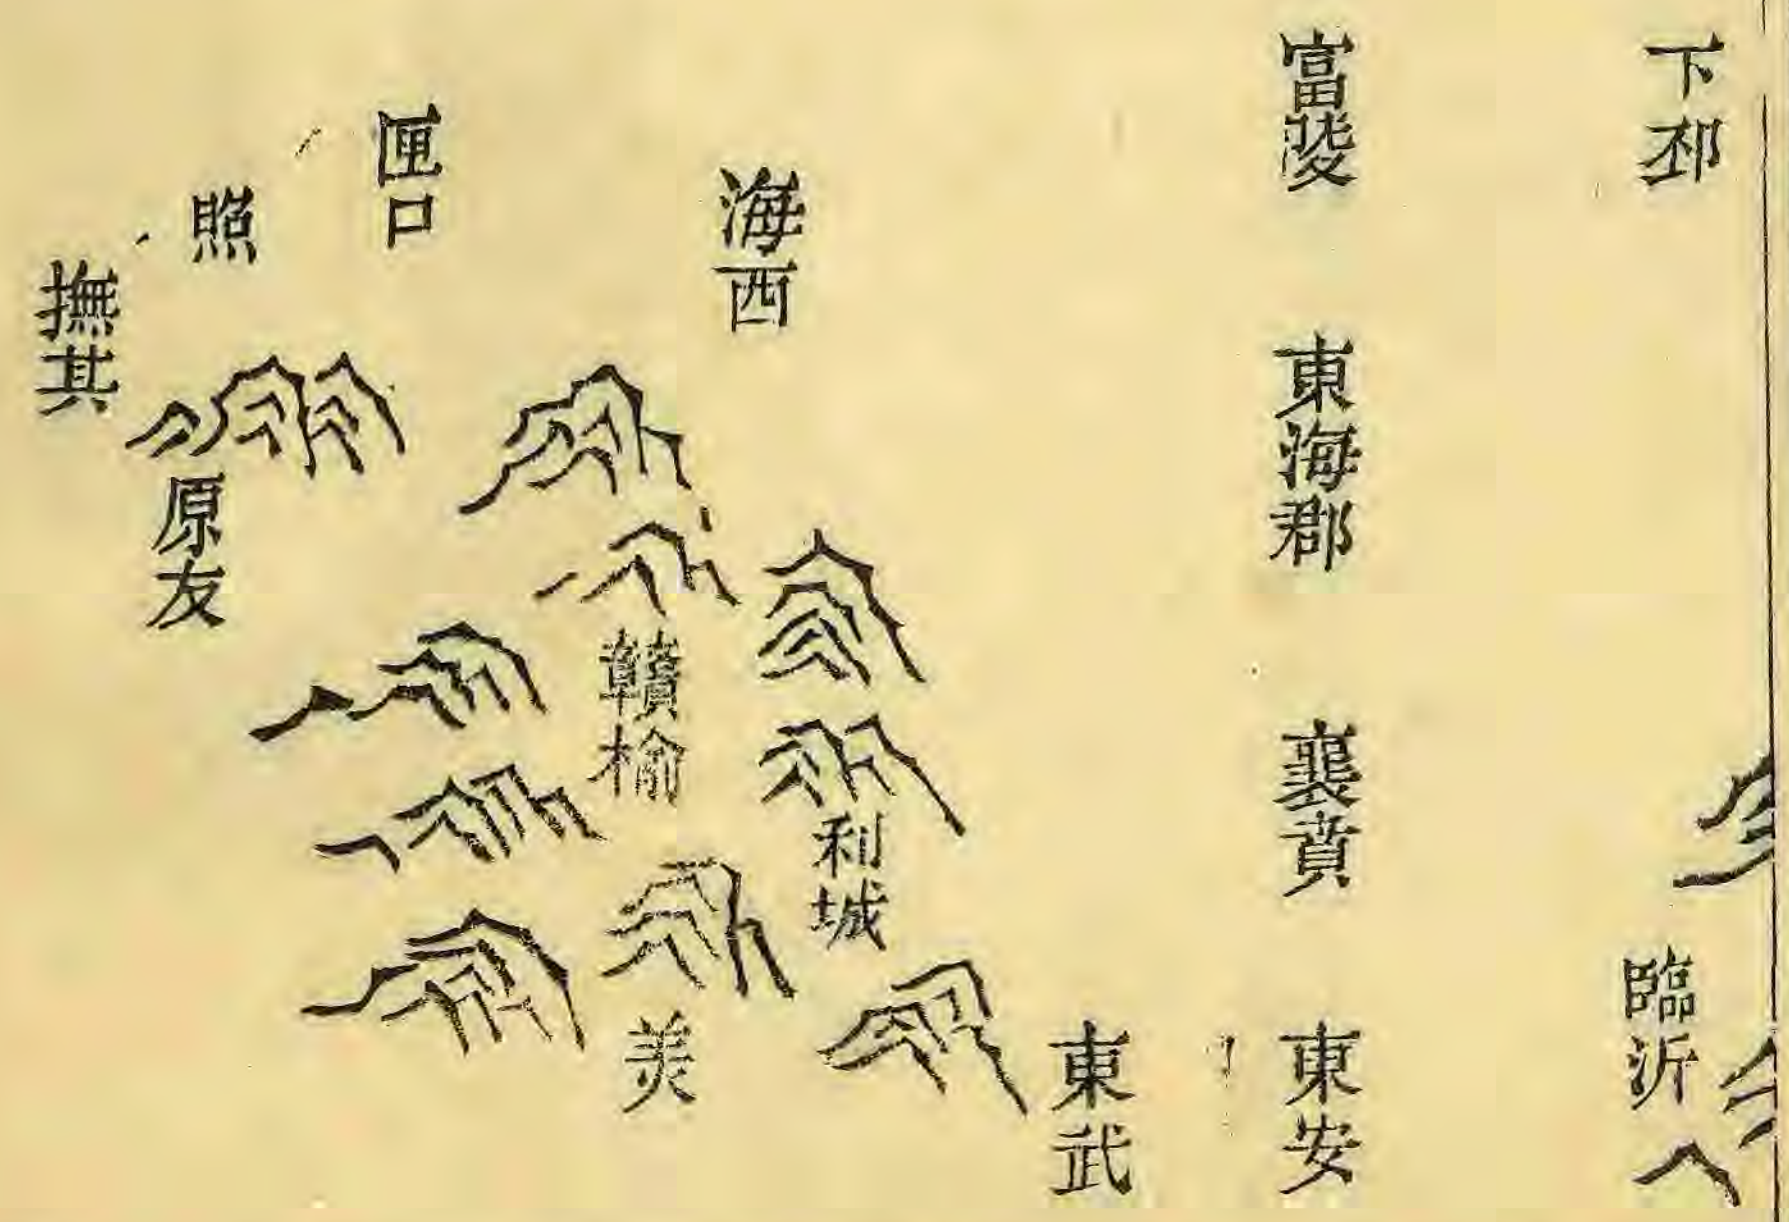 下邳
臨沂
富陵
東海郡
襄賁
東安
東武
海西
利城
贛榆
匡口
照
原友
撫其